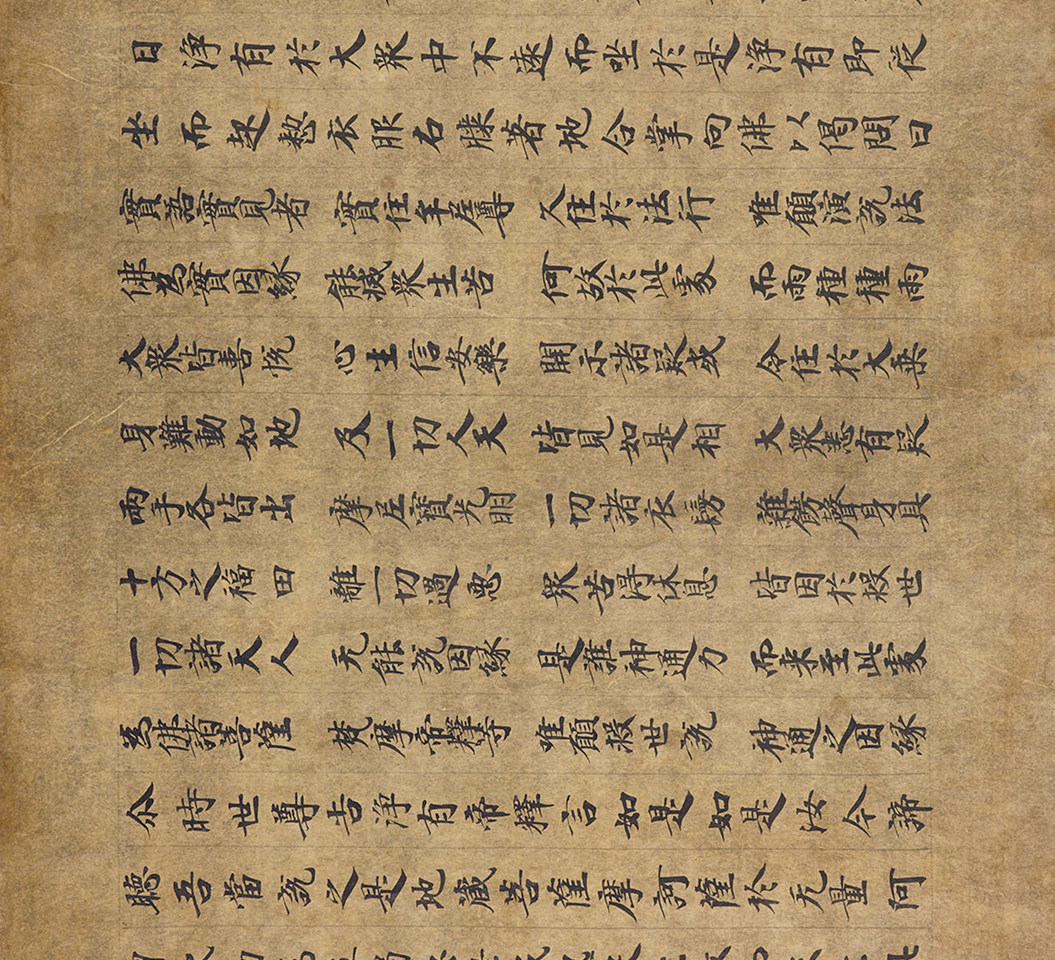 日淨有於大衆中不遠而坐於是淨有即從
坐而起整衣服右膝著地合掌向佛以偈問曰
實語實見者 實住牟尼尊 久住於法行 唯願演說法
佛為實因緣 能滅衆生苦 何故於此處 而雨種種雨
大衆皆喜悅 心生信安樂 開示諸疑或 令住於大乘
身難動如地 及一切人天 皆見如是相 大衆悉有疑
兩手各皆出 摩尼寶光明 一切諸衣鬘 雜飾聲身具
十方之福田 離一切過惡 衆苦得休息 皆因於救世
一切諸天人 无能說因緣 是誰神通力 而来至此處
為佛諸菩薩 梵摩帝釋等 唯願救世說 神通之因緣
尒時世尊告淨有帝釋言如是如是汝今諦
聽吾當說之是地藏菩薩摩訶薩於无量何